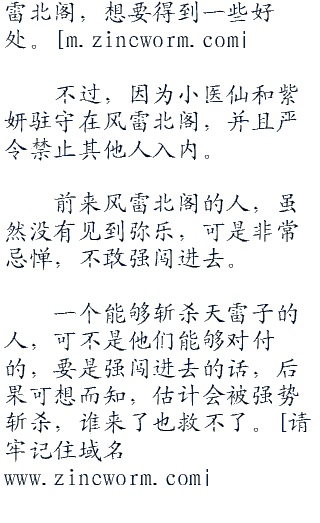 雷北阁，想要得到一些好
处。[m.zincworm.com]
不过，因为小医仙和紫
妍驻守在风雷北阁，并且严
令禁止其他人入内。
前来风雷北阁的人，虽
然没有见到弥乐，可是非常
忌惮，不敢强闯进去。
一个能够斩杀天雷子的
人，可不是他们能够对付
的，要是强闯进去的话，后
果可想而知，估计会被强势
斩杀，谁来了也救不了。[请
牢记住域名
www.zincworm.com]